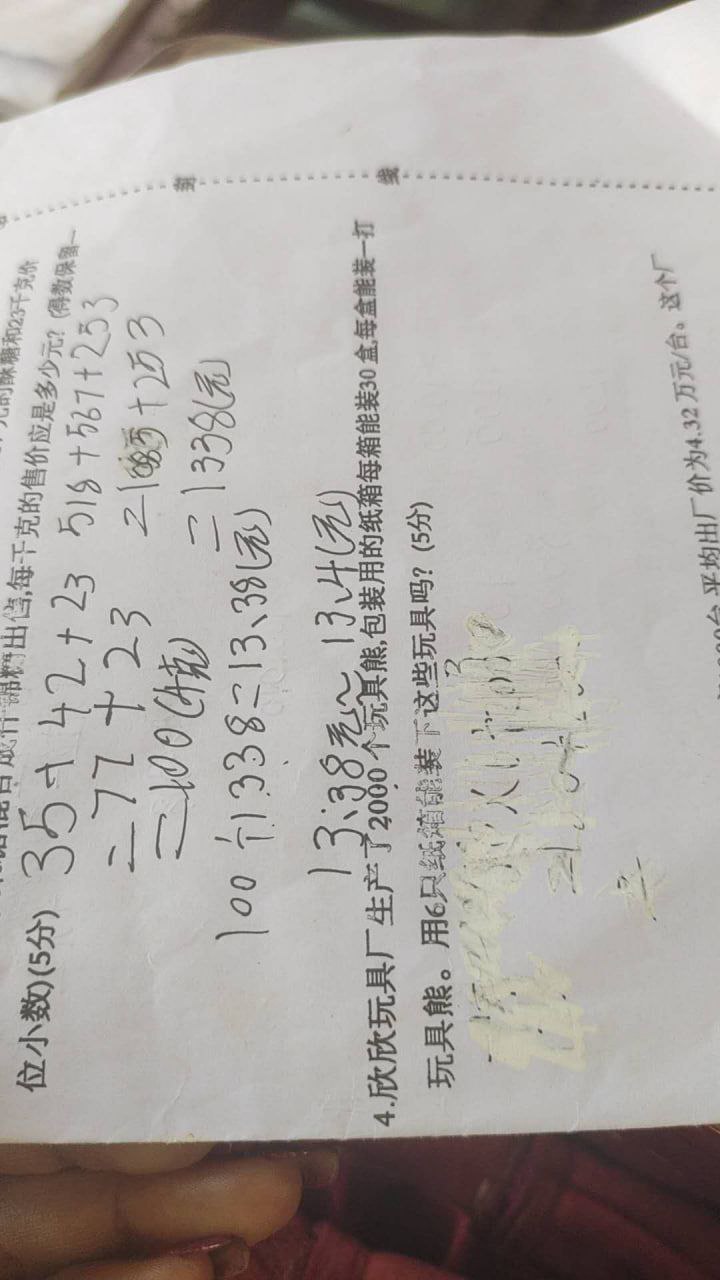 封
线
元的酥糖和23千克价
出售,每千克的售价应是多少元? (得数保留一
位小数)(5分)
35+42+23
518+567+253
=77+23
+253
=100(千克)
=1338(元)
100÷1338=13.38(元)
13.38元≈13.4(元)
4.欣欣玩具厂生产了2000个玩具熊,包装用的纸箱每箱能装30盒,每盒能装一打
玩具熊。用6只纸箱能装下这些玩具吗? (5分)
台,平均出厂价为4.32万元/台。这个厂